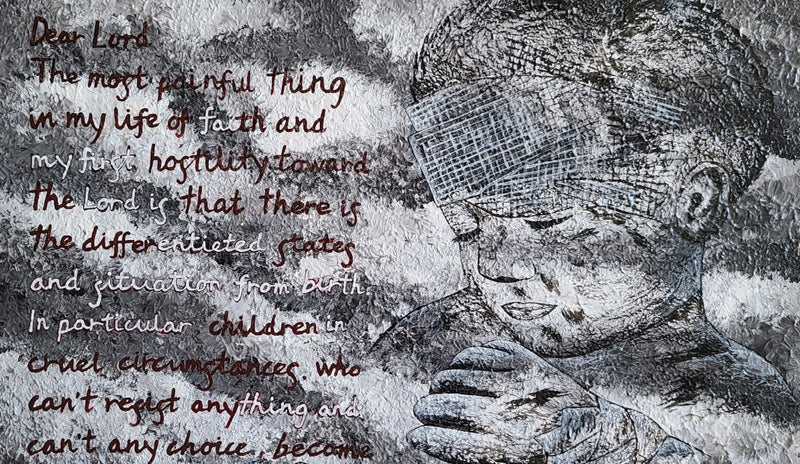 Dear Lord
The most painful thing
in my life of faith and
my first hostility toward
the Lord is that there is
the differentieted states
and situation from birth.
In particular children in
cruel circumstances, who
can't resist anything and
can't any choice, become